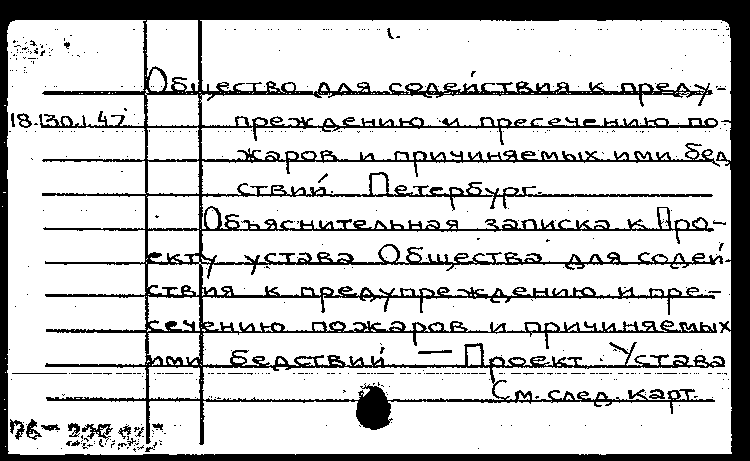 Общество для содействия к преду-
18.130.1.47 преждению и пресечению по-
жаров и причиняемых ими бед
ствий. Петербург.
Объяснительная записка к Про-
екту устава Общества для содей-
ствия к предупреждению и пре-
сечению пожаров и причиняемых
ими бедствий — Проект Устава
См. след. карт.